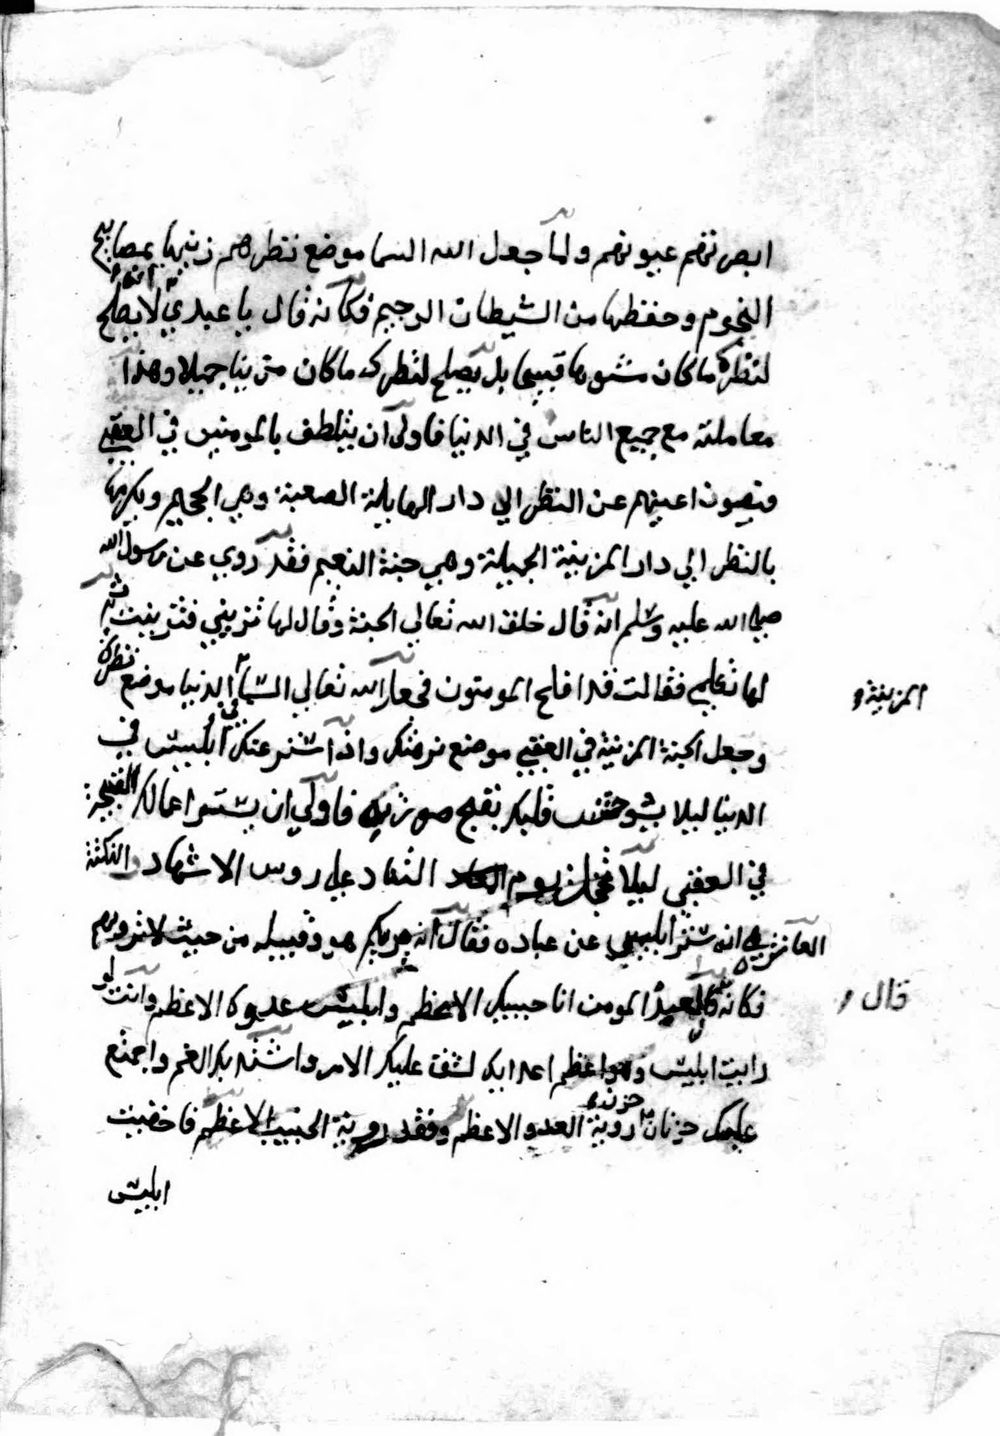 ابصرتهم عيونهم ولما جعل الله السما موضع نظرهم زينها بمصابيح
النجوم وحفظها من الشيطان الرجيم فكانه قال يا عبدي لا يصلح
لنظرك ما كان مشوها قبيحا بل يصلح لنظرك ما كان متزينا جميلا وهذا
معاملته مع جميع الناس في الدنيا فاولى ان يتلطف بالمومنين في العقبي
فيصون اعينهم عن النظر الي دار الهايلة الصعبة وهي الجحيم ويكرمها
بالنظر الي دار المزينة الجميلة وهي جنة النعيم فقد روي عن رسول الله
صلي الله عليه وسلم انه قال خلق الله تعالي الجنة وقال لها تزيني فتزينت ثم
لها تكلمي فقالت قد افلح المومنون فجعل الله تعالي السما الدنيا موضع نظرك
المزينة
وجعل الجنة المزينة في العقبي موضع نزهتك واذا ستر عنك ابليس في
الدنيا ليلا يشوش قلبك بقبح صورته فاولي ان يستر اعمالك القبيحة
في العقبي ليلا تخجل يوم التناد علي روس الاشهاد والنكتة
انه ستر ابليس عن عباده فقال انه يريكم هو وقبيله من حيث لا ترونهم
فكانه قال لعبده المومن انا حبيبك الاعظم وابليس عدوك الاعظم وانت لو
قال
رايت ابليس وهو اعظم اعدايك لشق عليك الامر واشتد بك الغم واجتمع
عليك حزنان حزن روية العدو الاعظم وفقد روية الحبيب الاعظم فاخفيت
ابليس